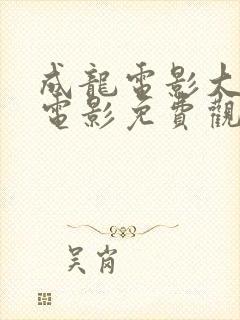 成龍電影大
電影免費觀
吴岗